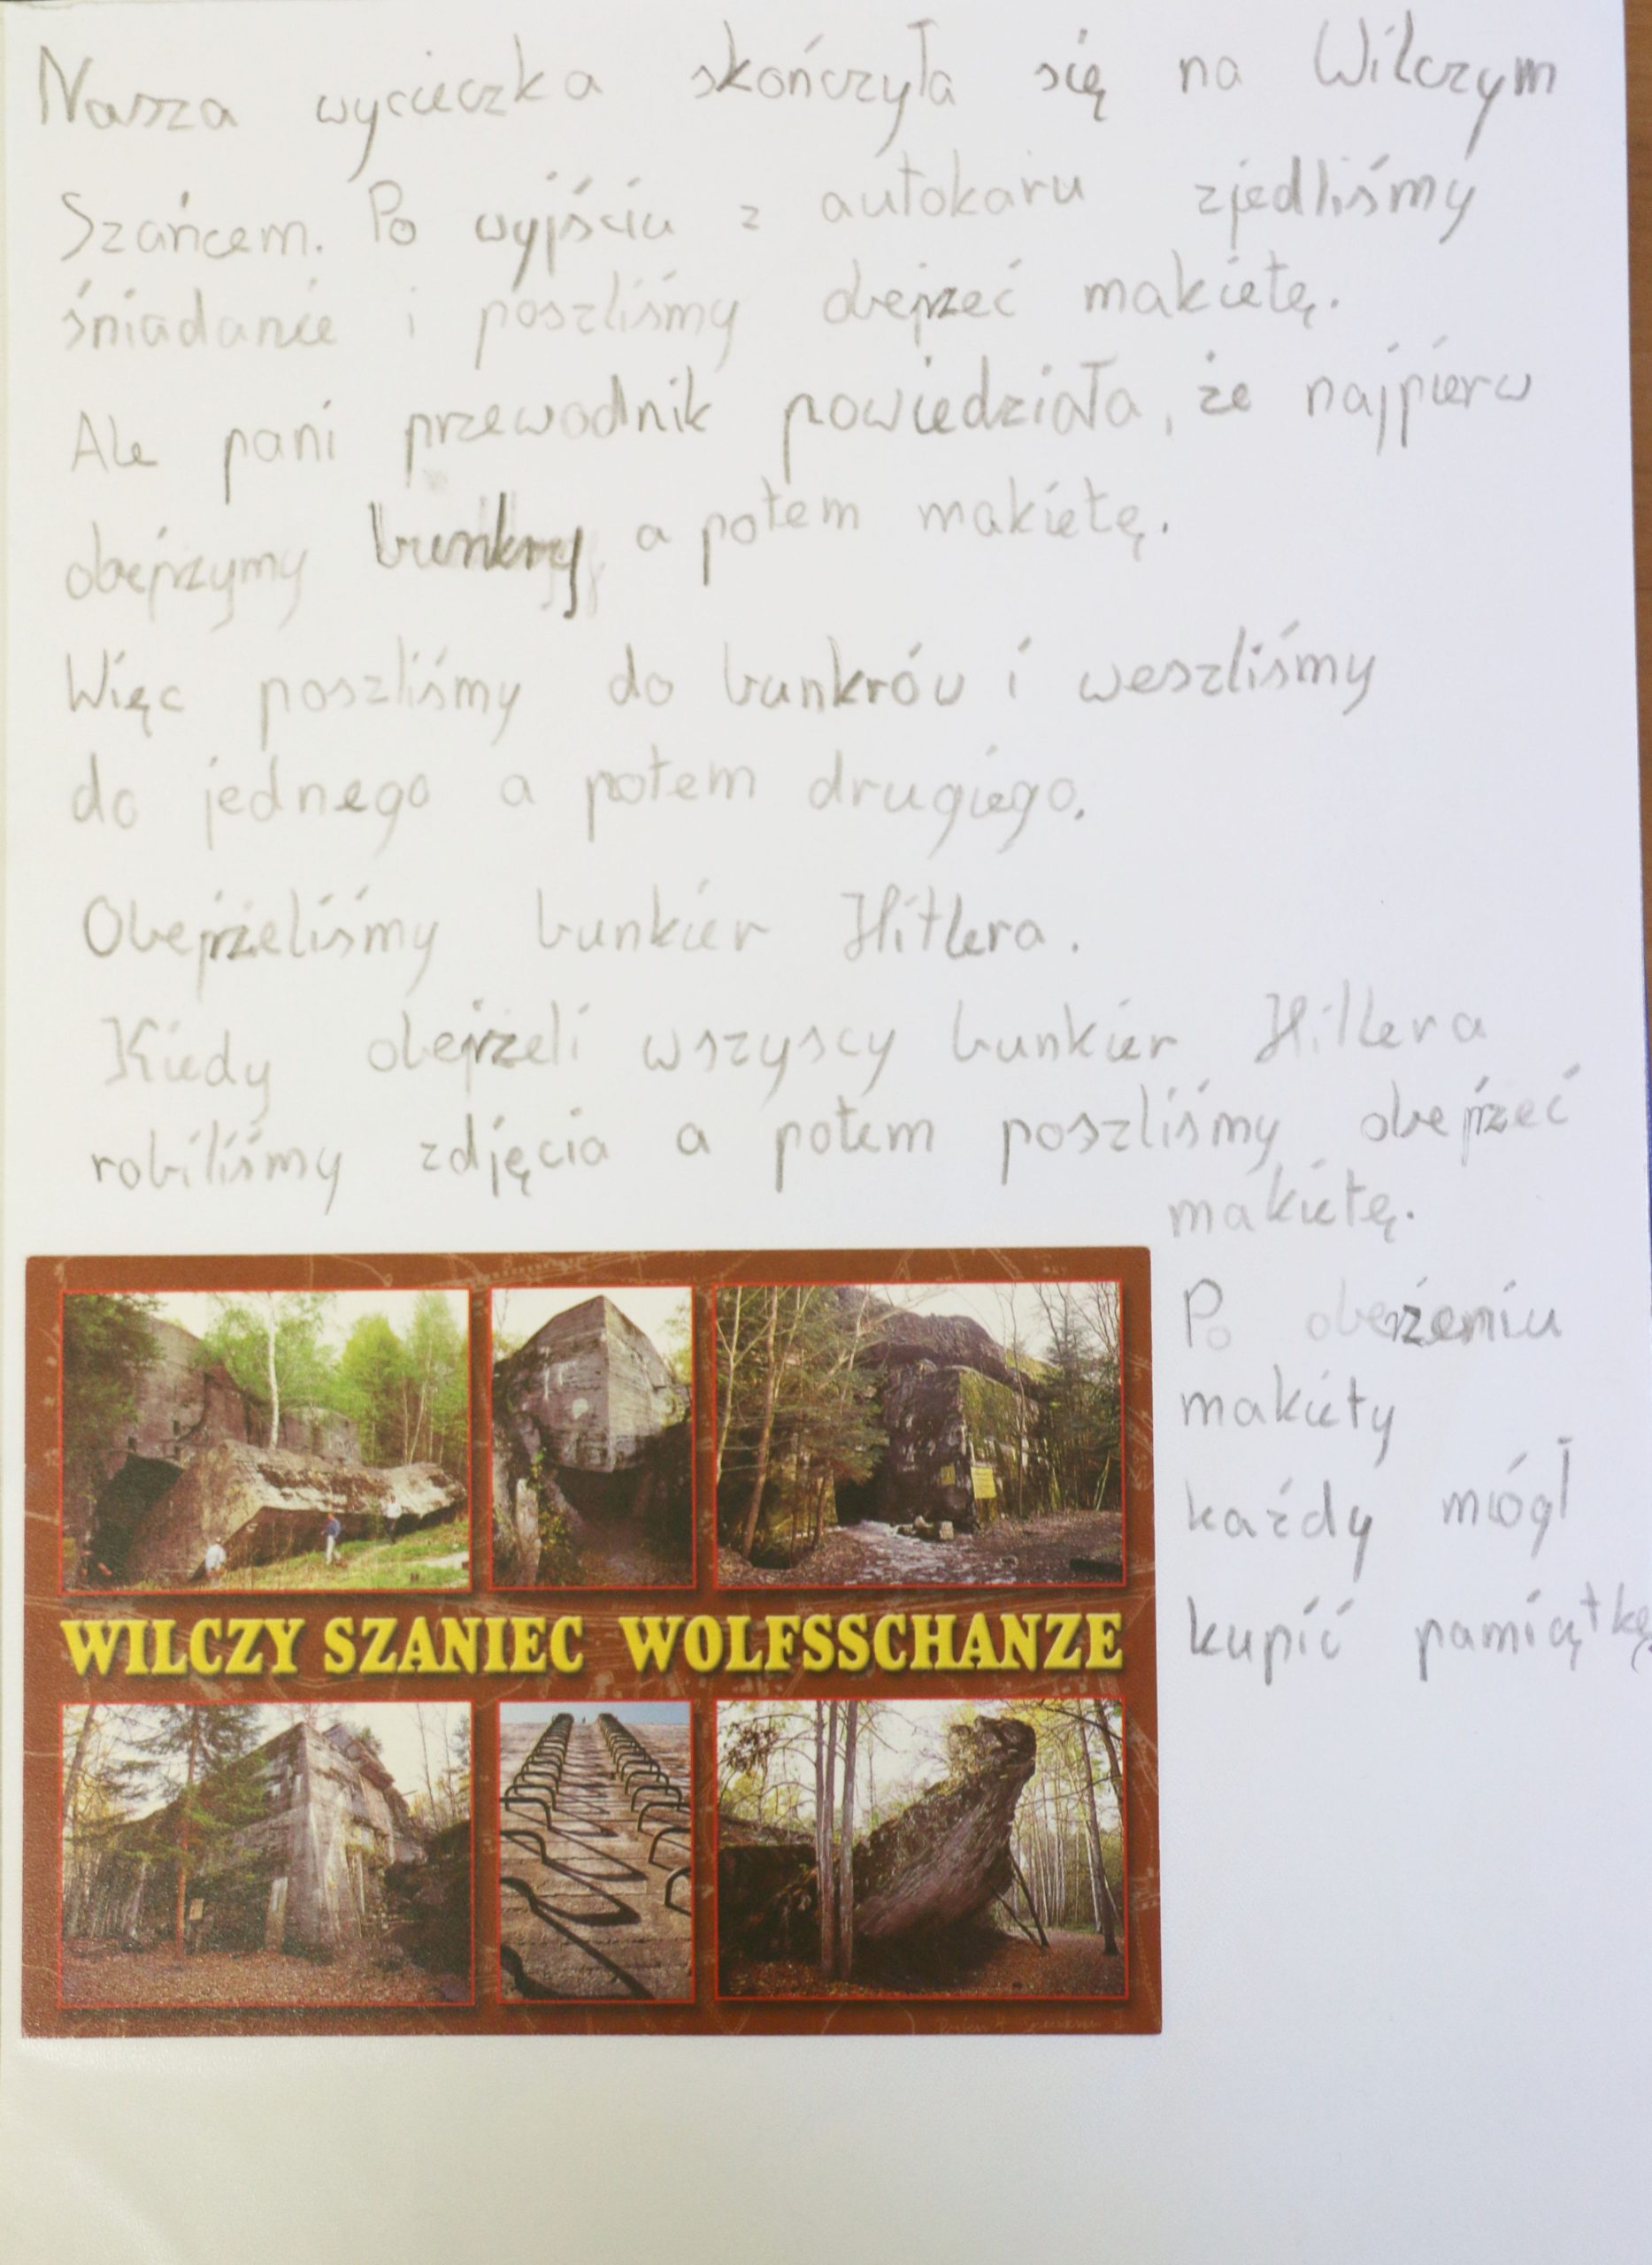 Nasza wycieczka skończyła się na Wilczym
Szańcem. Po wyjściu z autokaru zjedliśmy
śniadanie i poszliśmy obejrzeć makietę.
Ale pani przewodnik powiedziała, że najpierw
obejrzymy bunkry a potem makietę.
Więc poszliśmy do bunkrów i weszliśmy
do jednego a potem drugiego.
Obejrzeliśmy bunkier Hitlera.
Kiedy obejrzeli wszyscy bunkier Hitlera
robiliśmy zdjęcia a potem poszliśmy obejrzeć
makietę.
Po oberzeniu
makiety
każdy mógł
kupić pamiątkę
WILCZY SZANIEC WOLFSSCHANZE